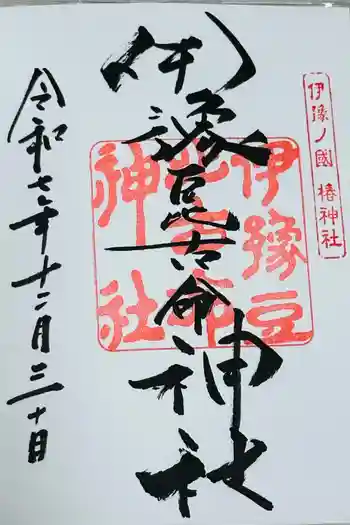 伊豫ノ國 椿神社
伊豫豆比古命神社
伊豫豆
比古命
神社
令和七年十二月三十日